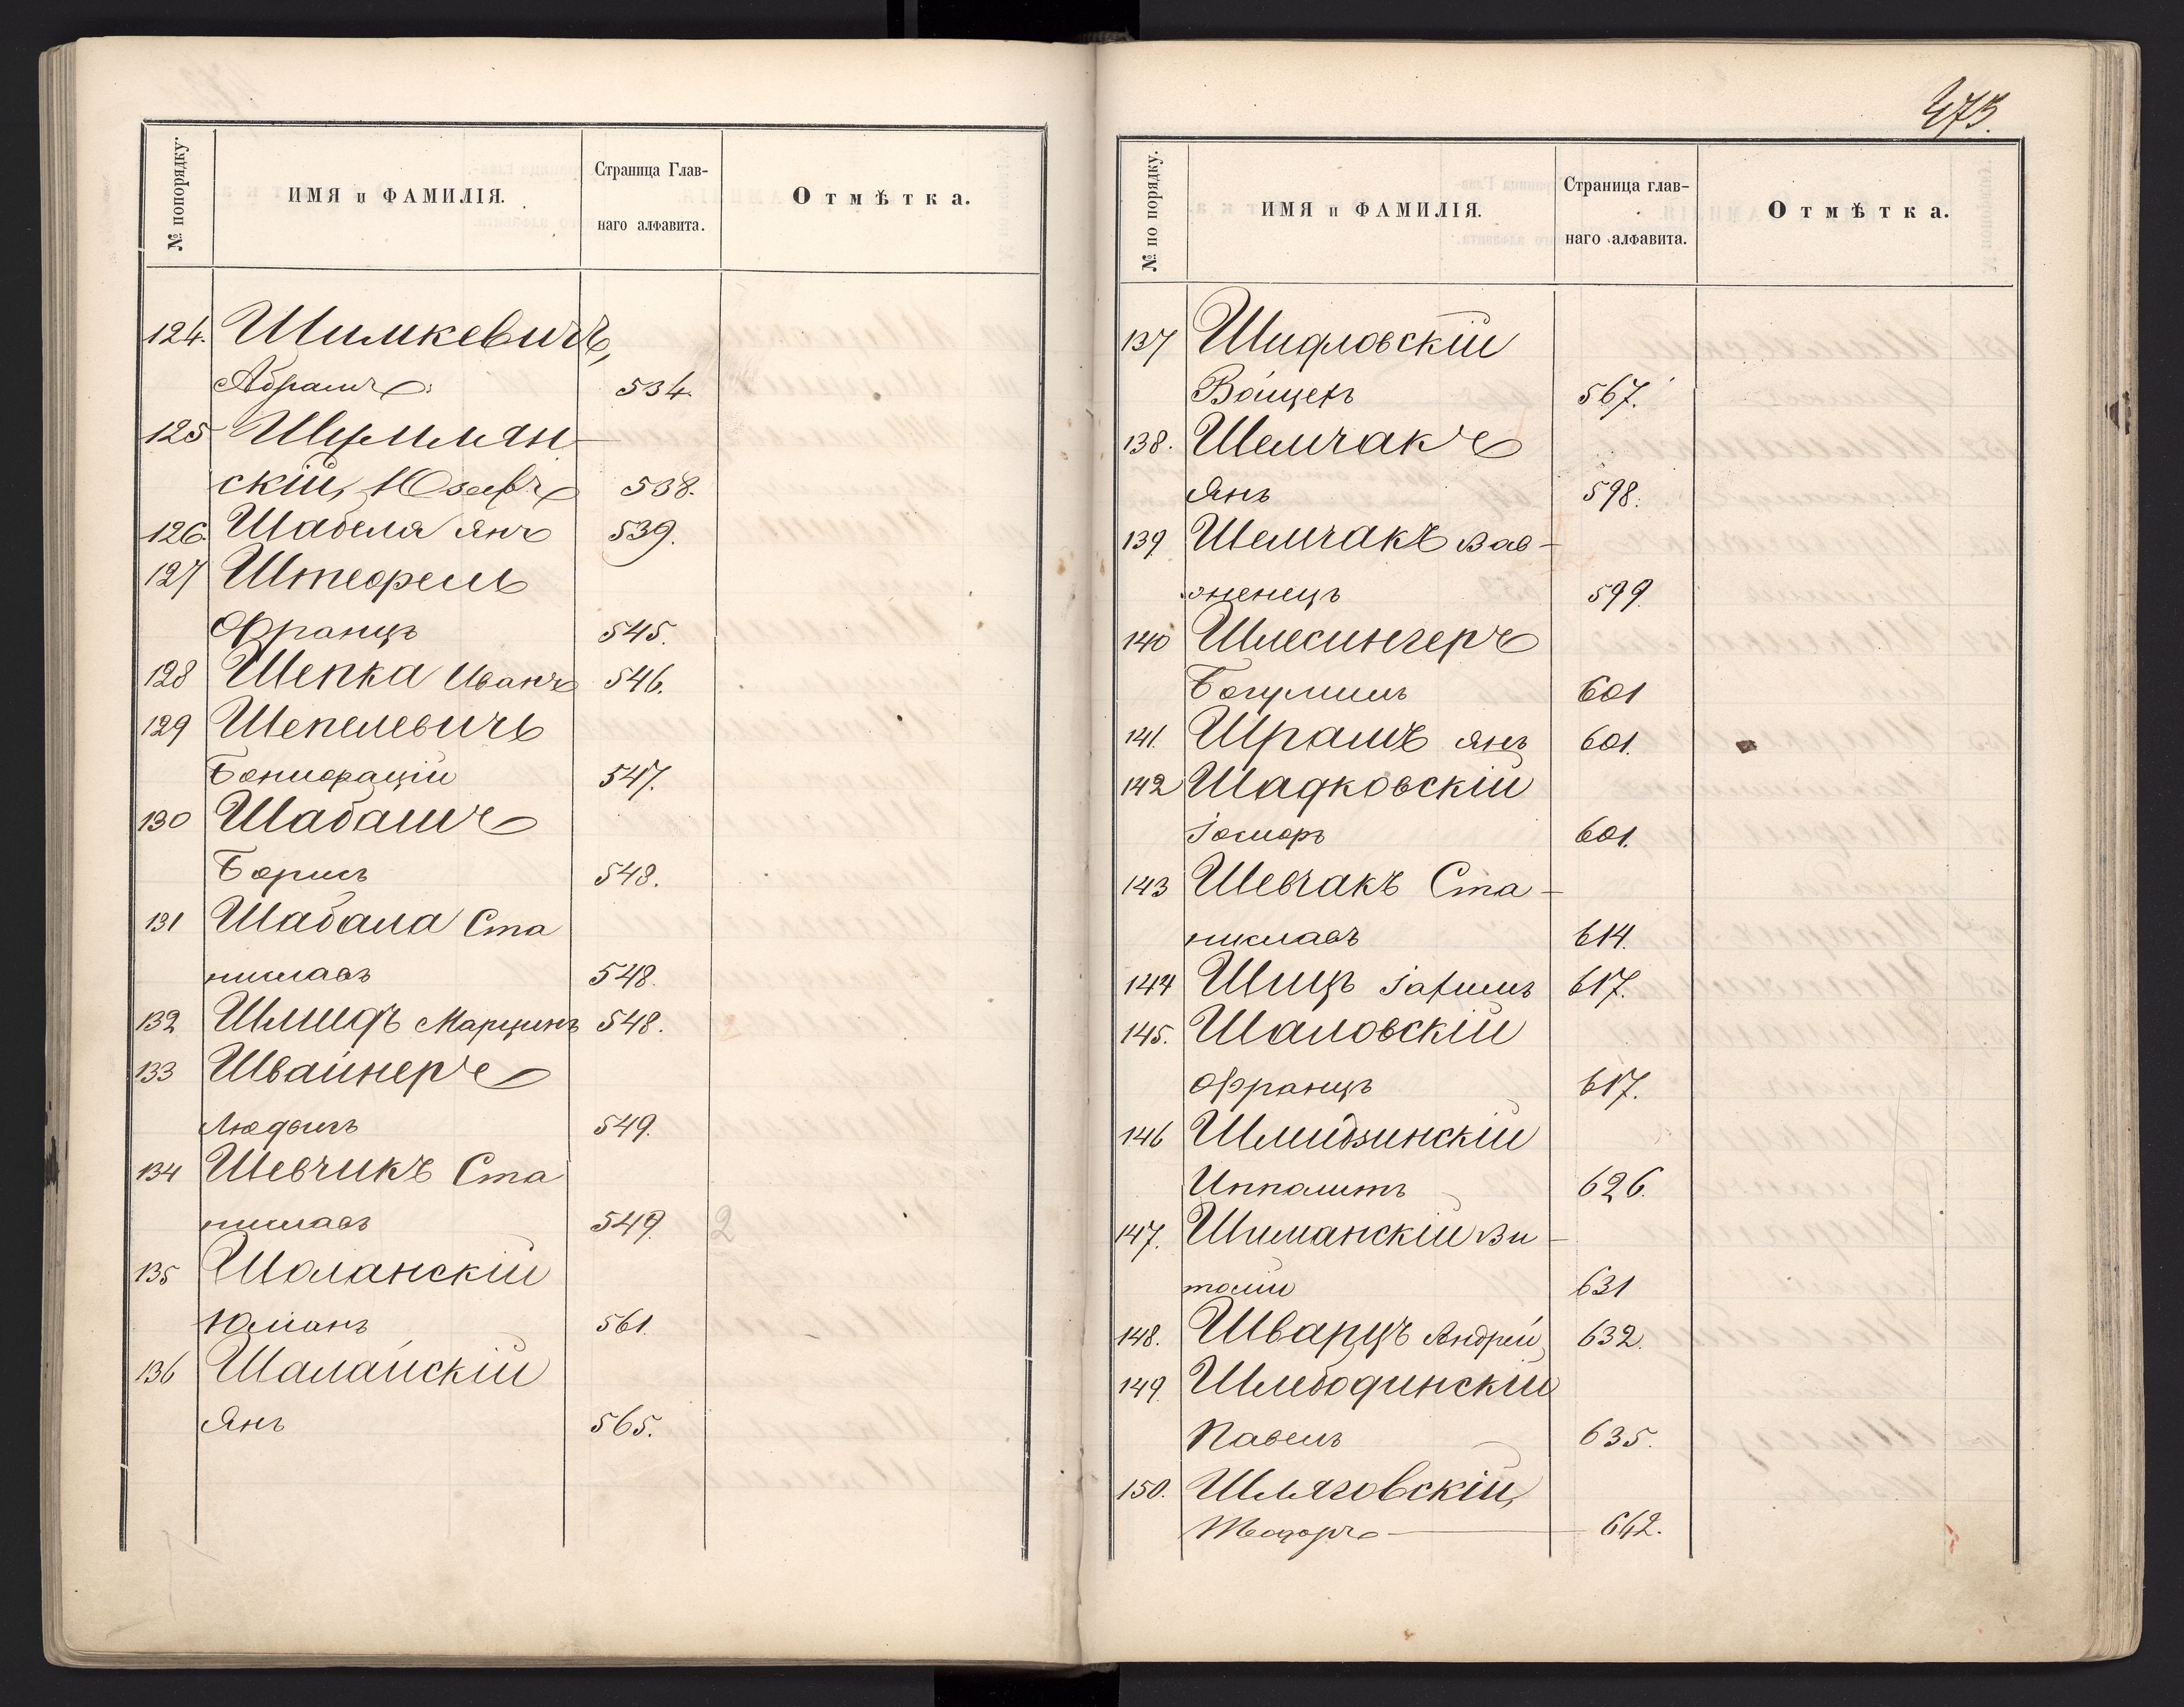 № попорядку.
ИМЯ и ФАМИЛІЯ.
Страница Глав-
наго алфавита.
Отмѣтка.
124. Шимкевичъ,
Абрамъ 534.
125 Шермлян-
скій, Юзефъ 538.
126. Шабеля Янъ 539.
127 Штефель
Францъ 545.
128 Шепка Иванъ 546.
129 Шепелевичъ
Бонифацій 547.
130 Шабашъ
Борисъ 548.
131 Шабала Ста
ниславъ 548.
132 Шмидъ Марцинъ 548.
133 Швайнеръ
Людвигъ 549.
134 Шевчикъ Ста
ниславъ 549. 2
135 Шоланскій
Юліанъ 561.
136 Шалайскій
Янъ 565.
473.
№ по порядку.
ИМЯ и ФАМИЛІЯ.
Страница глав-
наго алфавита.
Отмѣтка.
137 Шидловскій
Войцехъ 567.
138. Шемчакъ
Янъ 598.
139 Шемчакъ Вав-
женецъ 599.
140 Шлесингеръ
Богумилъ 601
141. Шрамъ Янъ 601.
142 Шадковскій
601.
143 Шевчакъ Ста-
ниславъ 614.
144 Шицъ Іахимъ 617.
145. Шаловскій
Францъ 617.
146 Шмидзинскій
Ипполитъ 626.
147. Шиманскій Ви-
талій 631
148. Шварцъ Андрей 632.
149 Шлебодинскій
Павелъ 635.
150. Шляговскій,
Теодоръ — 642.